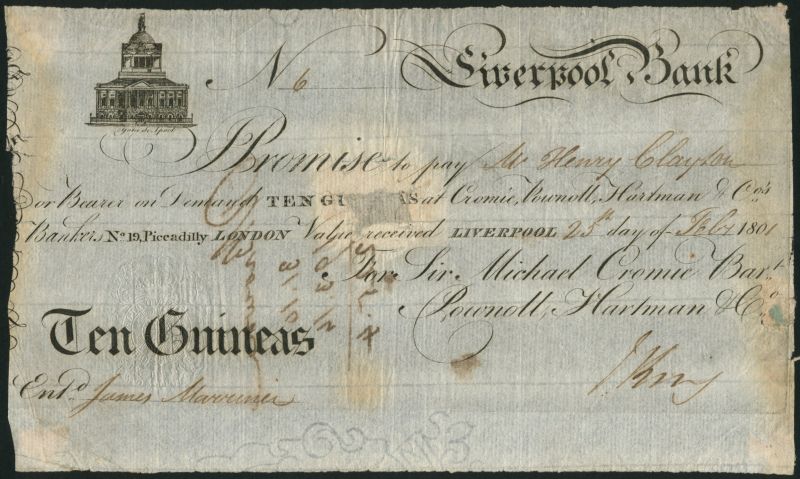 No 6
Liverpool Bank
I Promise to pay Mr Henry Clayton
or Bearer on Demand TEN GU AS at Cromie, Pownoll, Hartman & Co's
Bankers No 19, Piccadilly LONDON Value received LIVERPOOL 25th day of Feby 1801
For Sir Michael Cromie Bart
Pownoll, Hartman & Co
Ten Guineas
Entd James